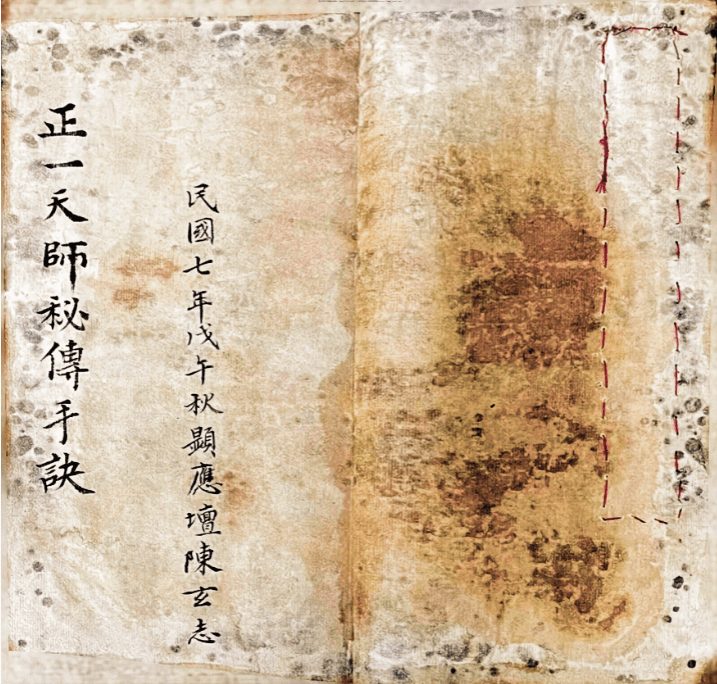 正一天師秘傳手訣
民國七年戊午秋顯應壇陳玄志